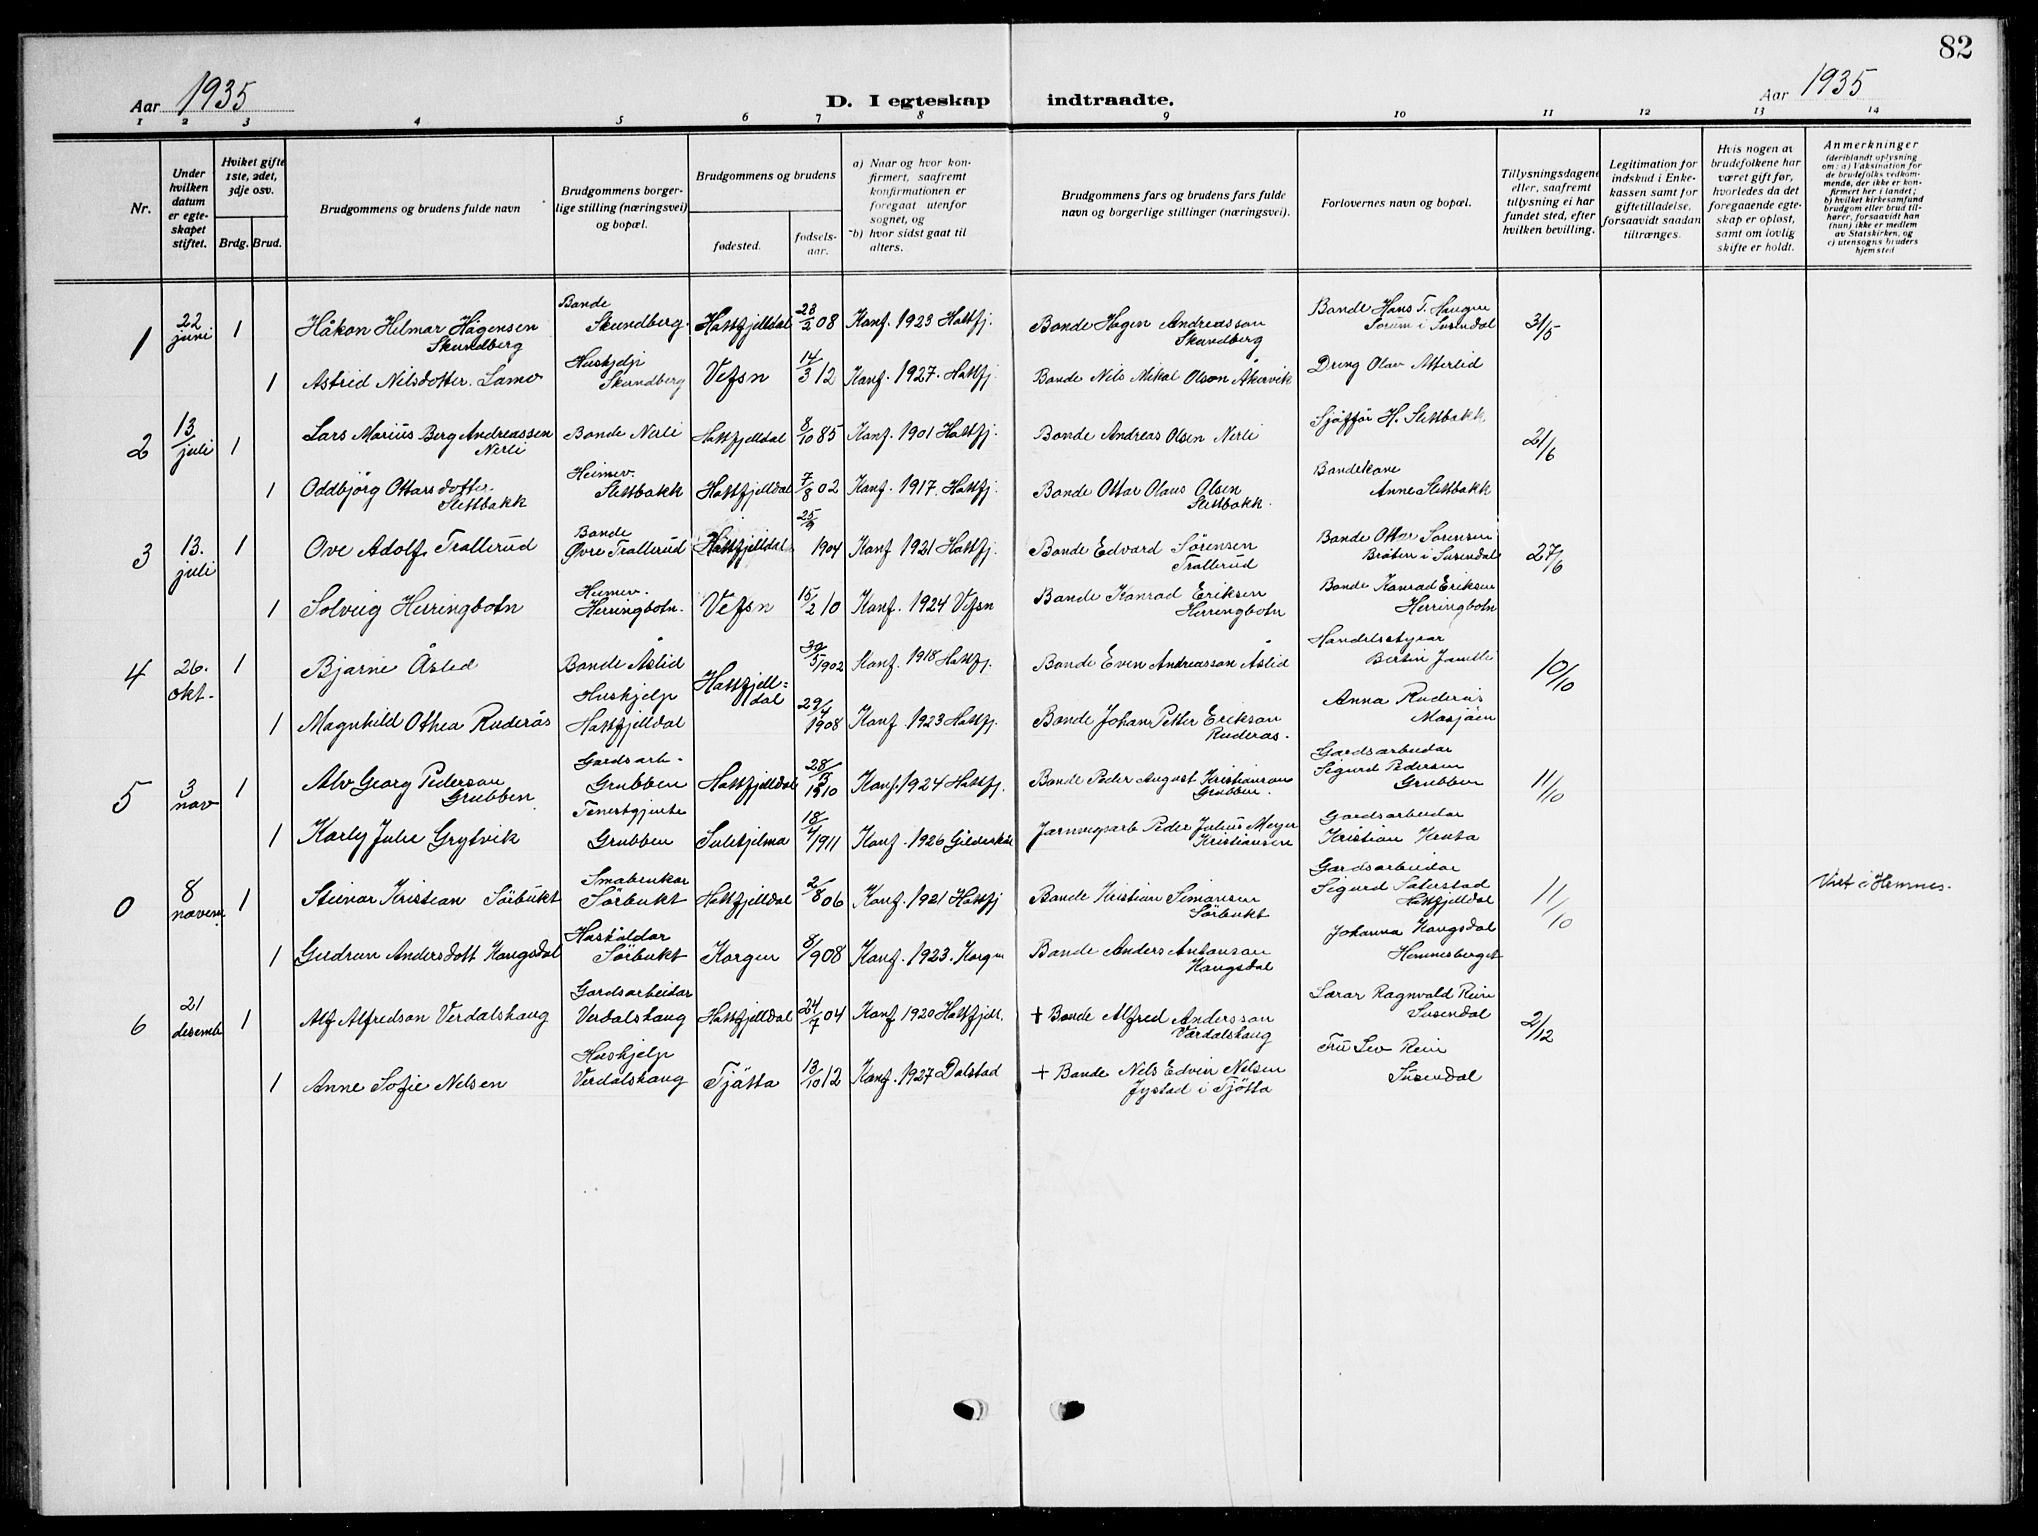 82
Aar 1935
D. I egteskap indtraadte.
Aar 1935
1 2 3 4 5 6 7 8 9 10 11 12 13 14
Nr.
Under hvilken datum er egteskapet stiftet.
Hviket gifte 1ste, 2det, 3dje osv.
Brdg. Brud.
Brudgommens og brudens fulde navn
Brudgommens borgerlige stilling (næringsvei) og bopæl.
Brudgommens og brudens
fødested.
fødselsaar.
a) Naar og hvor konfirmert, saafremt konfirmationen er foregaat utenfor sognet, og
b) hvor sidst gaat til alters.
Brudgommens fars og brudens fars fulde navn og borgerlige stillinger (næringsvei).
Forlovernes navn og bopæl.
Tillysningsdagene eller, saafremt tillysning ei har fundet sted, efter hvilken bevilling.
Legitimation for indskud i Enkekassen samt for giftetilladelse, forsaavidt saadan tiltrænges.
Hvis nogen av brudefolkene har været gift før, hvorledes da det foregaaende egteskap er opløst, samt om lovlig skifte er holdt.
Anmerkninger
(deriblandt oplysning om: a) Vaksination for de brudefolks vedkommende, der ikke er konfirmert her i landet; b) hvilket kirkesamfund brudgom eller brud tilhører, forsaavidt han (hun) ikke er medlem av Statskirken, og c) utensogns bruders hjemsted
1 22 juni 1 Håkon Helmar Hågensen Skundberg Bonde Skundberg. Hattfjelldal 23/2 08 Konf. 1923 Hattfj. Bonde Hagen Andreasson Skundberg Bonde Hans T. Haugen Sorum i Susendal 31/5
1 Astrid Nilsdotter Lamo Hushjelp Skundberg Vefsn 14/3 12 Konf. 1927. Hattfj. Bonde Nils Mikal Olson Åkervik Dreng Olav Atterlid
2 13 juli 1 Lars Marius Berg Andreassen Nerli Bonde Nerli Hattfjelldal 8/10 85 Konf. 1901 Hattfj. Bonde Andreas Olsen Nerli Sjåfför H. Slettbakk 21/6
1 Oddbjörg Ottarsdotter Slettbakk Heimev. Slettbakk Hattfjelldal 7/8 02 Konf. 1917. Hattfj. Bonde Ottar Olaus Olsen Slettbakk. Bondekone Anne Slettbakk
3 13. juli 1 Ove Adolf Trallerud Bonde Övre Trallerud Hattfjelldal 25/9 1904 Konf. 1921 Hattfj. Bonde Edvard Sörensen Trallerud Bonde Ottar Sorensen Bråten i Susendal 27/6
1 Solveig Herringbotn Heimev. Herringbotn. Vefsn 15/2 10 Konf. 1924 Vefsn Bonde Konrad Eriksen Herringbotn Bonde Konrad Eriksen Herringbotn
4 26. okt. 1 Bjarne Åslid Bonde Åslid Hattfjelldal 30/5 1902 Konf. 1918 Hattfj. Bonde Even Andreasson Åslid Handelsstyrar Bertin Jamtli 10/10
1 Magnhild Othea Ruderås Hushjelp Hattfjelldal 29/4 1908 Konf. 1923 Hattfj. Bonde Johan Petter Erikson Ruderas. Anna Ruderås Mosjöen
5 3 nov 1 Alv Georg Pederson Grubben Gardsarb. Grubben Hattfjelldal 28/3 1910 Konf. 1924 Hattfj. Bonde Peder August Kristianson Grubben. Gardsarbeidar Sigurd Pedersen Grubben 11/10
1 Karly Julie Grytvik Tenestgjente Grubben Sulitjelma 18/4 1911 Konf. 1926 Gildeskål Jarnvegsarb Peder Julius Meyer Kristiansen Gardsarbeidar Kristian Kruta
0 8 novem. 1 Steinar Kristian Sörbukt Småbrukar Sörbukt Hattfjelldal 2/8 06 Konf. 1921 Hattfj Bonde Kristian Simonsen Sörbukt Gardsarbeidar Sigurd Sæterstad Hattfjelldal 11/10 Viet i Hemnes.
1 Gudrun Andersdott Kangsdal Husholdar Sörbukt Korgen 8/9 08 Konf. 1923. Korgen Bonde Anders Antonson Kangsdal Johanna Kangsdal Hemnesberget
6 21 desemb 1 Alf Alfredson Verdalshaug Gardsarbeidar Verdalshaug Hattfjelldal 24/7 04 Konf 1920 Hattfjell. + Bonde Alfred Andersson Værdalshaug Lærar Ragnvald Rein Susendal 2/12
1 Anne Sofie Nilsen Hushjelp Verdalshaug Tjötta 13/10 12 Konf. 1927 Dolstad + Bonde Nils Edvin Nilsen Jystad i Tjötta Fru Liv Rein Susendal